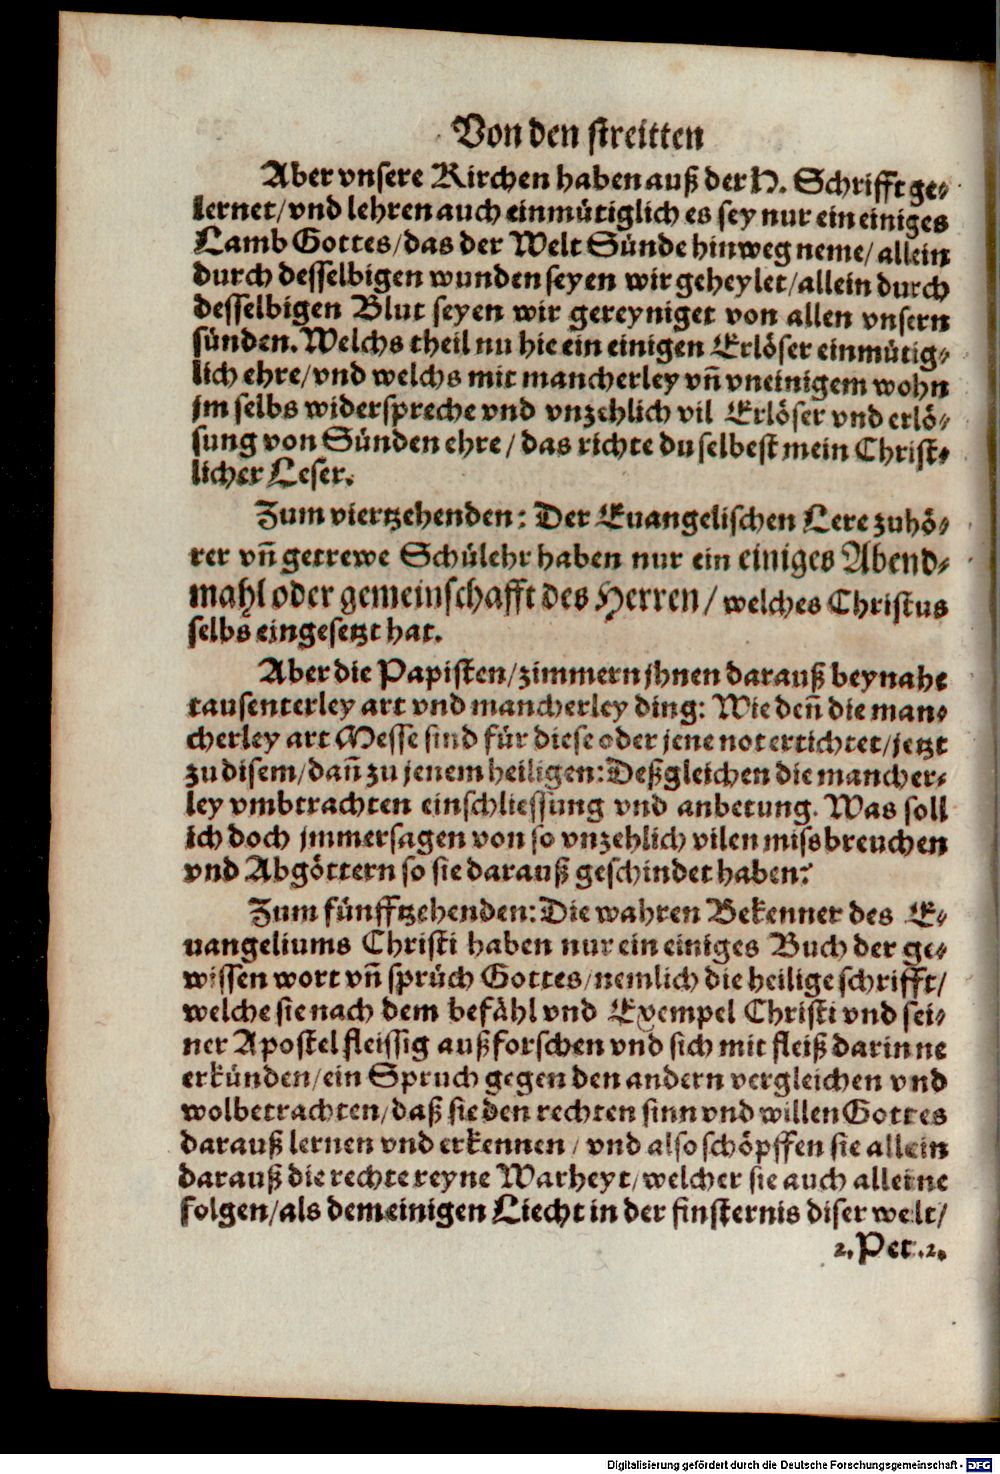 Von den streitten
Aber vnsere Kirchen haben auß der H. Schrifft ge-
lernet/ vnd lehren auch einmütiglich es sey nur ein einiges
Lamb Gottes/ das der Welt Sünde hinweg neme/ allein
durch desselbigen wunden seyen wir geheylet/ allein durch
desselbigen Blut seyen wir gereyniget von allen vnsern
sünden. Welchs theil nu hie ein einigen Erlöser einmütig-
lich ehre/ vnd welchs mit mancherley vñ vneinigem wohn
jm selbs widerspreche vnd vnzehlich vil Erlöser vnd erlö-
sung von Sünden ehre/ das richte du selbest mein Christ-
licher Leser.
Zum viertzehenden: Der Euangelischen Lere zuhö-
rer vñ getrewe Schülehr haben nur ein einiges Abend-
mahl oder gemeinschafft des Herren/ welches Christus
selbs eingesetzt hat.
Aber die Papisten/ zimmern jhnen darauß beynahe
tausenterley art vnd mancherley ding: Wie deñ die man-
cherley art Messe sind für diese oder jene not ertichtet/ jetzt
zu disem/ dañ zu jenem heiligen: Deßgleichen die mancher-
ley vmbtrachten einschliessung vnd anbetung. Was soll
ich doch jmmer sagen von so vnzehlich vilen missbreuchen
vnd Abgöttern so sie darauß geschindet haben?
Zum fünfftzehenden: Die wahren Bekenner des E-
uangeliums Christi haben nur ein einiges Buch der ge-
wissen wort vñ sprüch Gottes/ nemlich die heilige schrifft/
welche sie nach dem befähl vnd Exempel Christi vnd sei-
ner Apostel fleissig außforschen vnd sich mit fleiß darinne
erkünden/ ein Spruch gegen den andern vergleichen vnd
wolbetrachten/ daß sie den rechten sinn vnd willen Gottes
darauß lernen vnd erkennen/ vnd also schöpffen sie allein
darauß die rechte reyne Warheyt/ welcher sie auch alleine
folgen/ als dem einigen Liecht in der finsternis diser welt/
2. Pet. 2.
Digitalisierung gefördert durch die Deutsche Forschungsgemeinschaft - DFG